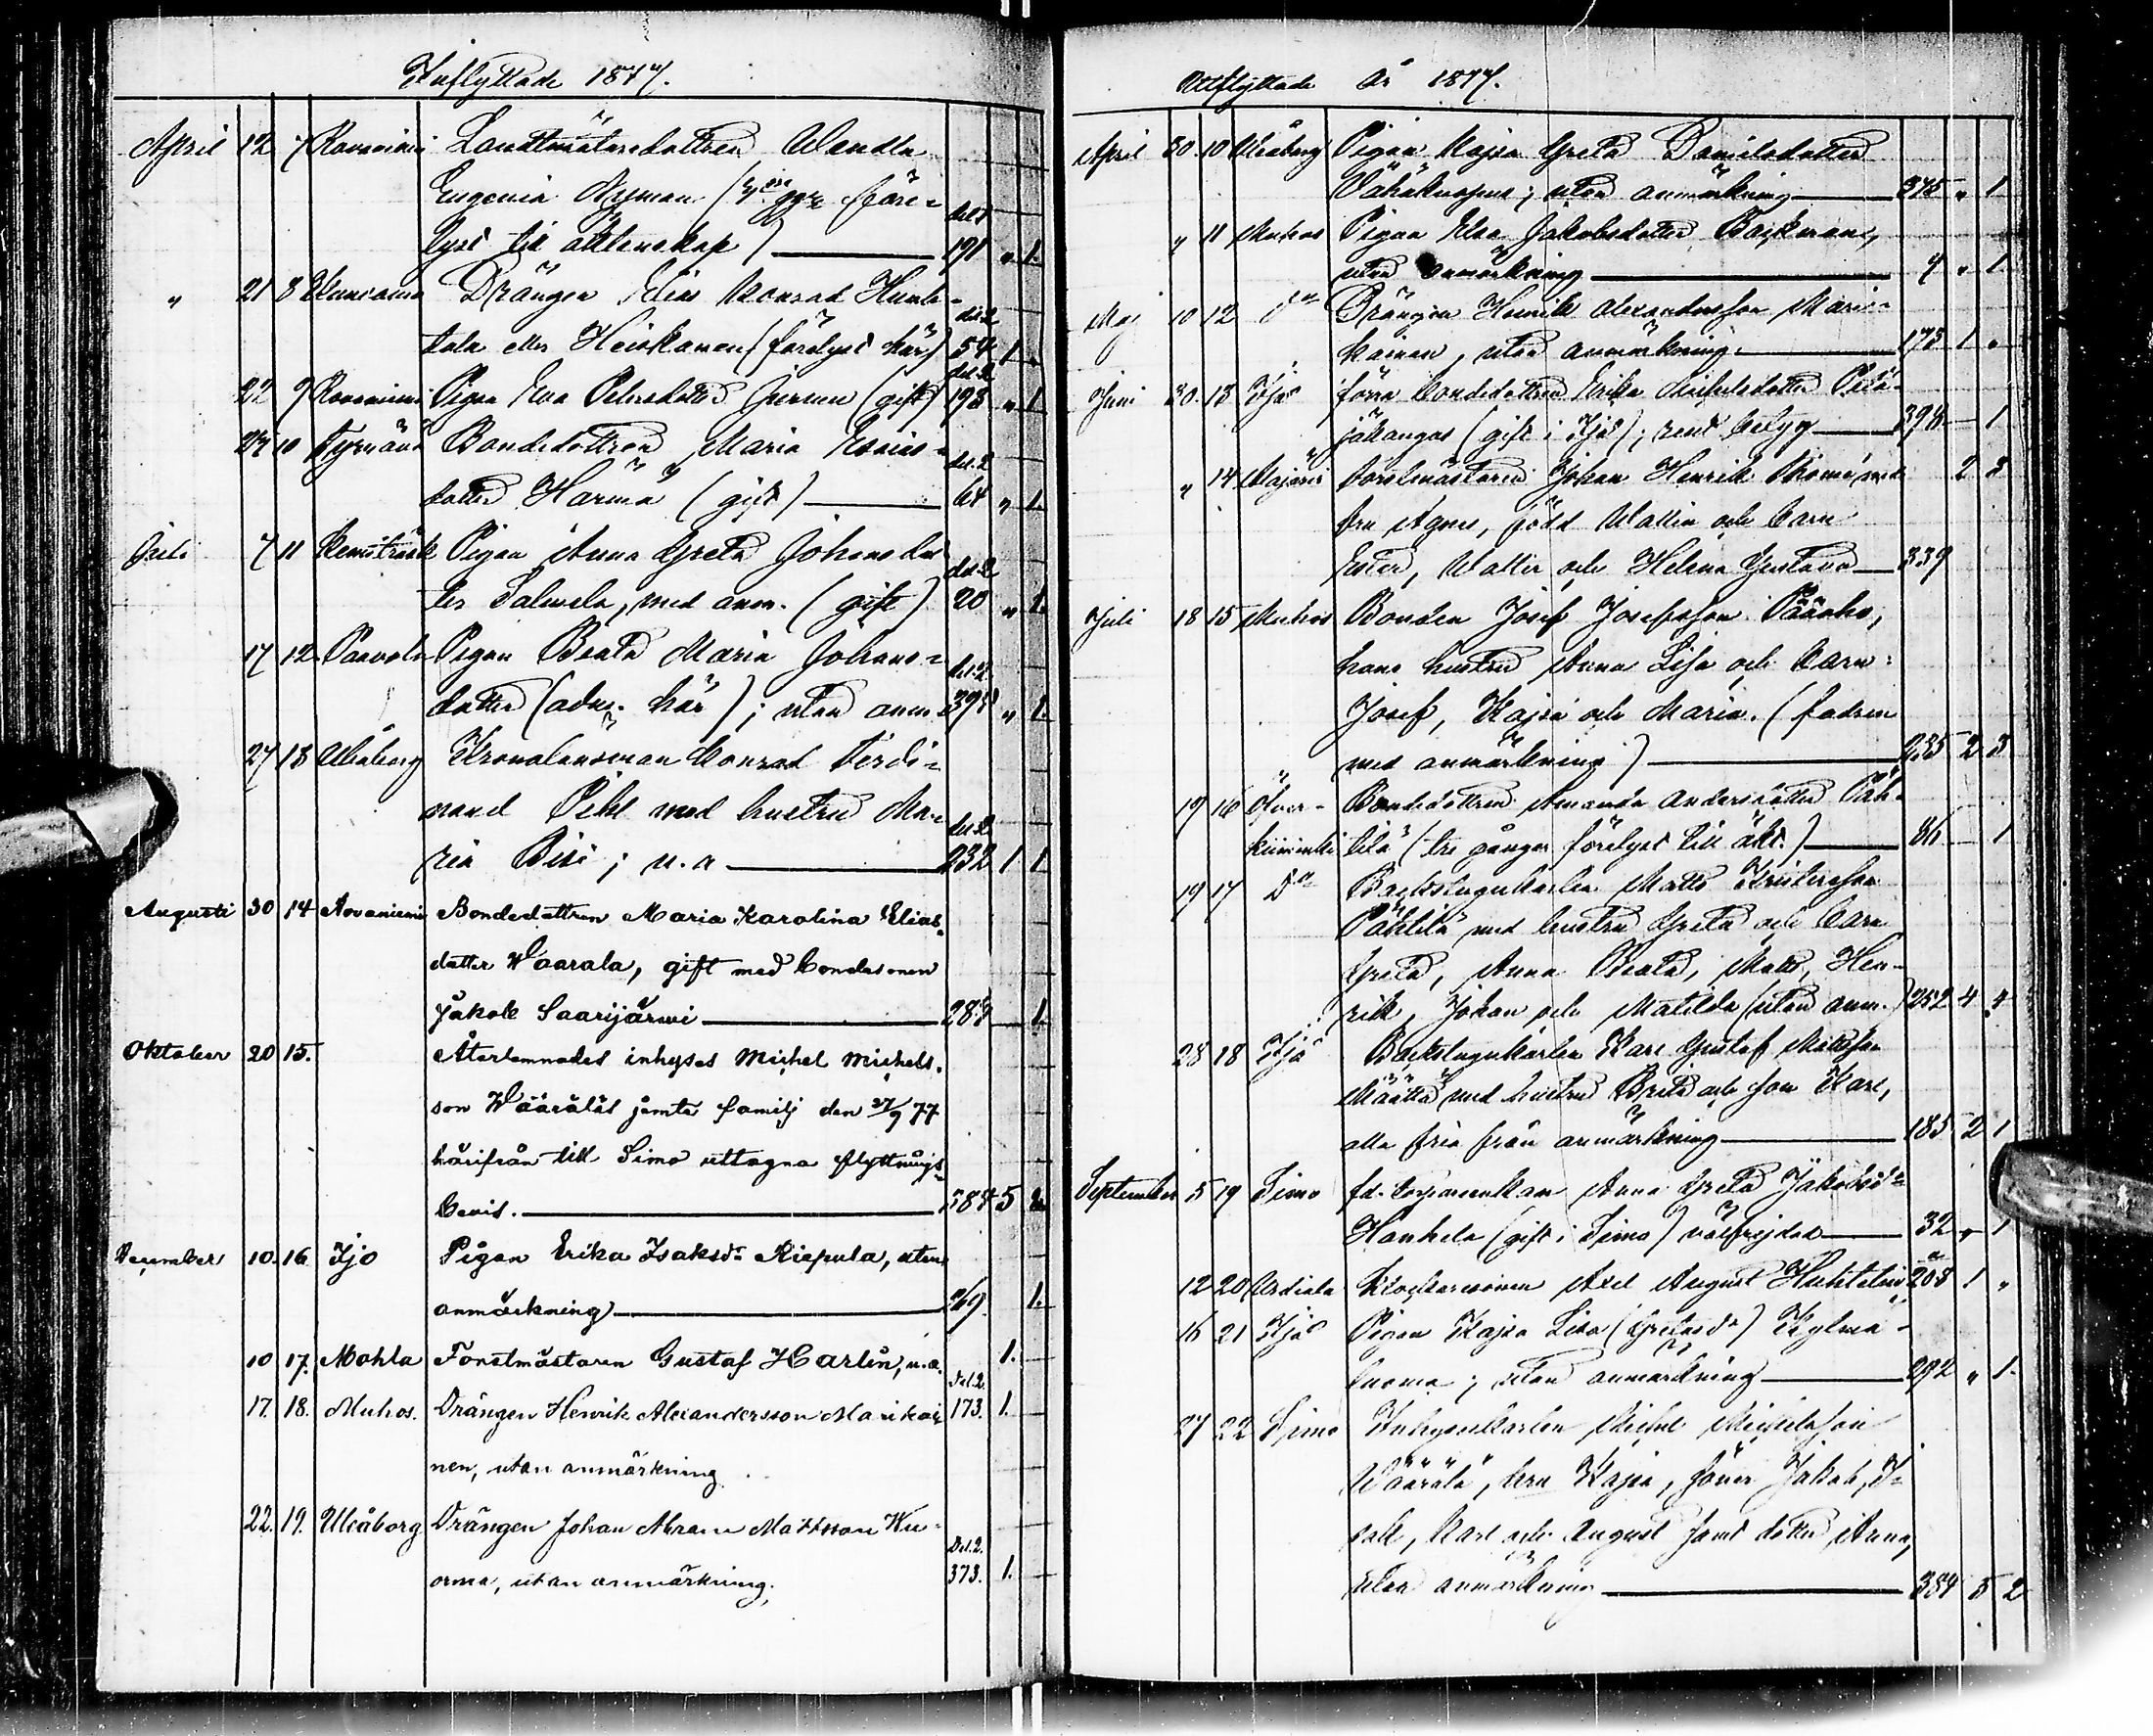 Inflyttade 1877.
April 12 7 Rovaniemi Landtmätaredottren Wendla
Eugenia Nyman ( ggr före-
lyst till äktenskap) del 1 191 " 1.
" 21 8 Drängen Elias Konrad Hunt-
tala eller Heiskanen (förelyst här) del. 2 54 1
22 9 Rovaniemi Pigan Eva Petersdotter (gift) del. 2 198 " 1
27 10 Tyrnävä Bondedottren Maria Esaias-
dotter Harmä (gift) del. 2 64 " 1.
Juli 7 11 Kemiträsk Pigan Anna Greta Johansdot-
ter Salmela, med anm. (gift) del. 2 20 " 1.
17 12 Paavola Pigan Beata Maria Johans-
dotter (adm. här); utan anm. del. 2 " 1.
27 13 Uleåborg Kronolänsman Konrad Ferdi-
nand Pihl med hustru Ma-
ria ; u. a del. 2 232 1 1
Augusti 30 14 Rovaniemi Bondedottren Maria Karolina Elias-
dotter Waarala, gift med bondesonen
Jakob Saarijärwi 287 1.
Oktober 20 15. Återlemnades inhyses Michel Michels-
son Wäärälä's jämte familj den 27/9 77
härifrån till Simo uttagna flyttnings-
bevis. 384 5 2.
December 10. 16. Ijo Pigan Erika Isaksdr Riepula, utan
anmärkning 269. 1.
10 17. Mohla Forstmästaren Gustaf Harlin, u.a. 1.
17. 18. Muhos. Drängen Henrik Alexandersson Marikai- Del. 2. 173. 1.
nen, utan anmärkning.
22. 19. Uleåborg Drängen Johan Abram Mattsson Ku-
orma, utan anmärkning. Del. 2. 373. 1.
Utflyttade år 1877.
April 30 10 Uleåborg Pigan Kajsa Greta Danielsdotter
; utan anmärkning 375 " 1
" 11 Muhos Pigan Elsa Jakobsdotter Backman,
utan anmärkning 4 " 1
Maj 10 12 do Drängen Henrik Alexandersson Mari-
kainen, utan anmärkning 173 1 "
Juni 30. 13 Ijo förra bondedottren Erika Michelsdotter Pitä-
jäkangas (gift i Ijo); rent betyg 398 1
" 14 Forstmästaren Johan Henrik med 2 3
fru Agnes, född Wallin och barn
Ester, Walter och Helena Gustava 339
Juli 18 15 Muhos Bonden Josef Josefsson Pääaho,
hans hustru Anna Lisa och barn:
Josef, Kajsa och Maria. (fadren
med anmärkning) 235 2 3
19 16 Öfver- Bondedottren Amanda Andersdotter Päk-
kiiminki tilä (tre gånger förelyst till äkt.) 86 1
19 17 Do Backstugukarlen Matts Kristersson
Päktilä med hustru Greta och barn
Greta, Anna Beata, Matts, Hen-
rik, Johan och Matilda (utan anm.) 252 4 4
28 18 Ijo Backstugukarlen Karl Gustaf Mattsson
Määttä med hustru Brita och son Karl,
alla fria från anmärkning 185 2 1
September 5 19 Simo fd. Anna Greta Jakobsdr
Hanhela (gift i Simo) välfrejdad 32 " 1
12 20 Urdiala Klockaresonen Axel August Huhtelin 208 1 "
16 21 Ijo Pigan Kajsa Lisa (Gretasdr) Kylmä-
luoma; utan anmärkning 292 " 1.
27 22 Simo Inhyseskarlen Michel Michelsson
Wäärälä, hru Kajsa, söner Jakob, I-
sak, Karl och August samt dotter Anna,
utan anmärkning 384 5 2